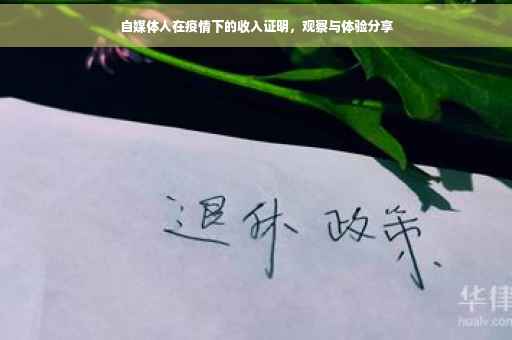 自媒体人在疫情下的收入证明，观察与体验分享
退休 政策
华律
hualv.com